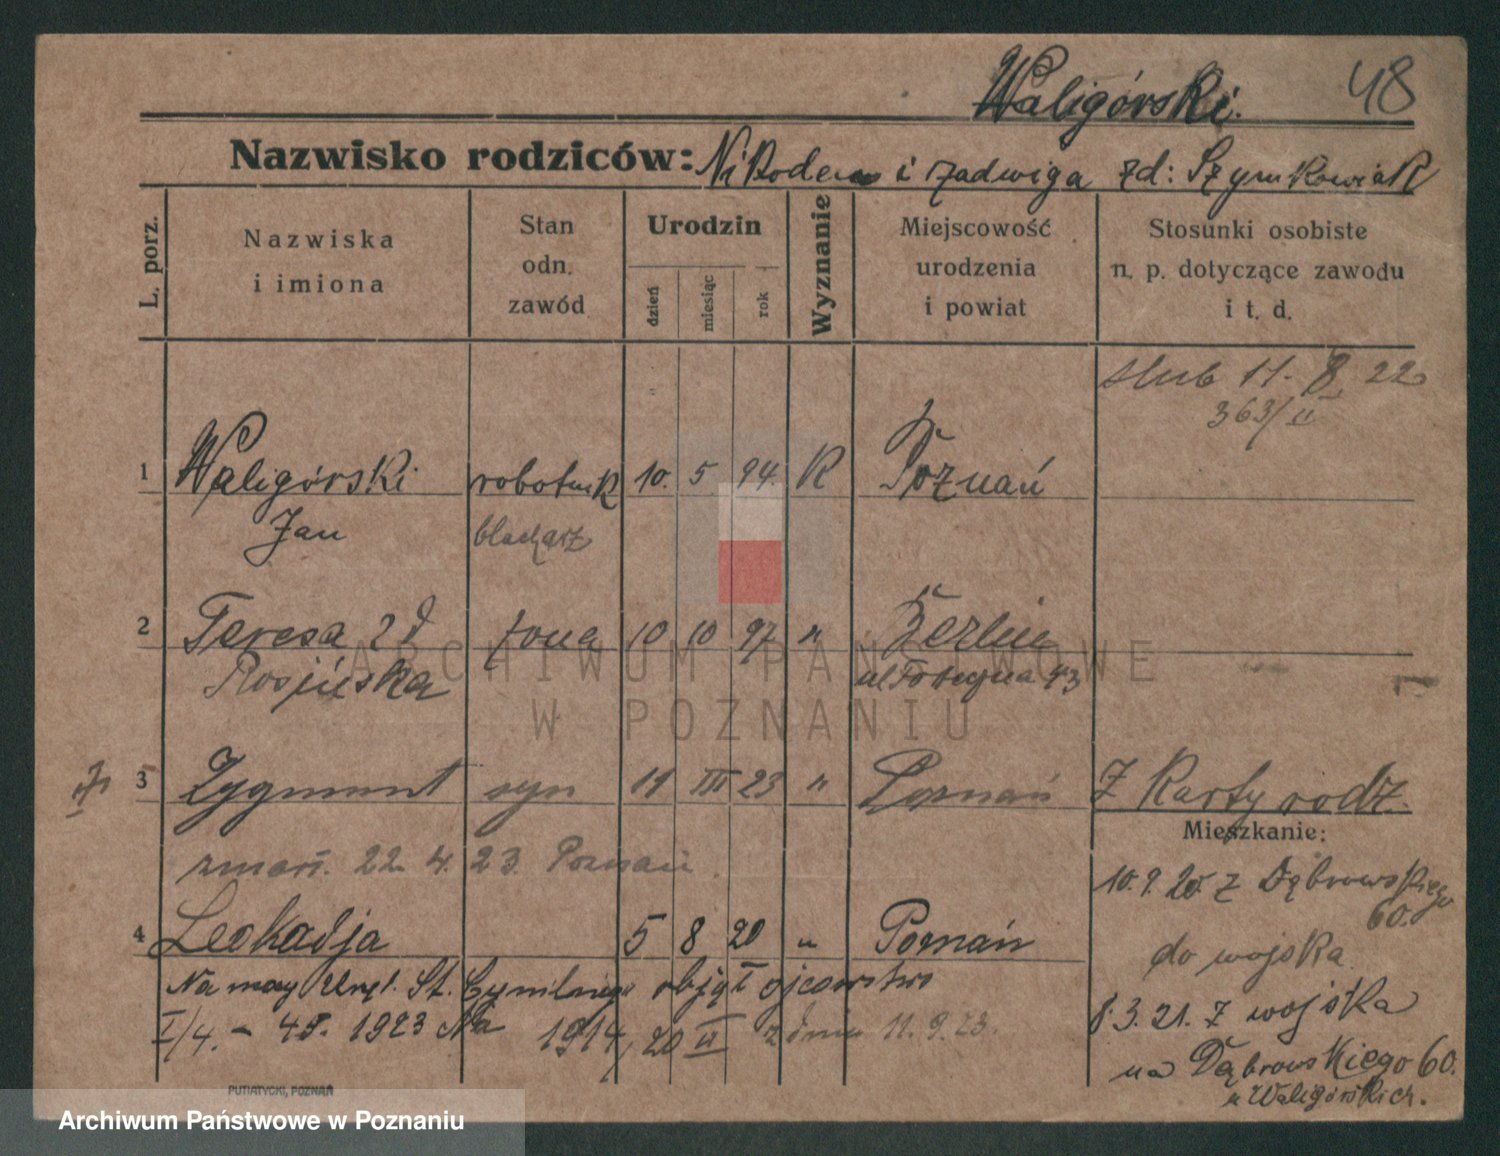 Waligórski. 48
Nazwisko rodziców: Nikodem i Jadwiga zd: Szymkowiak
L. porz.
Nazwiska i imiona
Stan odn. zawód
Urodzin
dzień
miesiąc
rok
Wyznanie
Miejscowość urodzenia i powiat
Stosunki osobiste n. p. dotyczące zawodu i t. d.
ślub 11. 8 22
363/II
1 Waligórski robotnik 10. 5 94. R Poznań
Jan blacharz
2 Teresa zd żona 10 10 97 " Berlin
Rosińska ul
3 Zygmunt syn 11 III 23 " Poznań Z Karty rodz.
Mieszkanie:
zmarł. 22. 4. 23. Poznań.
10. 9. 20. z Dąbrowskiego
60.
4 Leokadja 5 8 20 " Poznań
do wojska
Na mocy Urzęd. St. Cywilnego objął ojcowstwo
8. 3. 21. z wojska
I/4. - 1923 Na 1914/20 II z dnia 11. 9. 23.
na Dąbrowskiego 60.
u Waligórskich.
PUTIATYCKI, POZNAŃ
ARCHIWUM PAŃSTWOWE
W POZNANIU
Archiwum Państwowe w Poznaniu